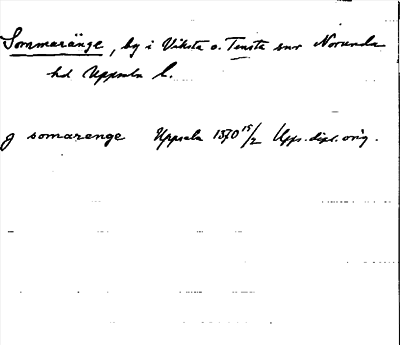 Sommaränge, by i Viksta o. Tensta snr Norunda
hd Uppsala l.
g somarenge Uppsala 1370 15/2 Upps. dipl. orig.